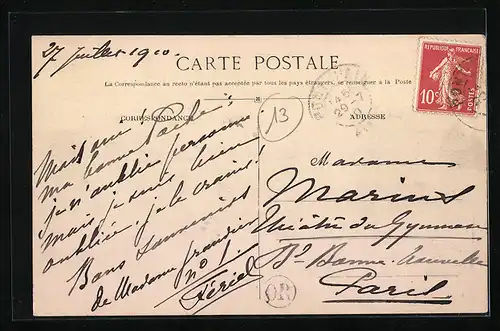 27 Juillet 1910.
CARTE POSTALE
La Correspondance au recto n'étant pas acceptée par tous les pays étrangers, se renseigner à la Poste
CORRESPONDANCE
ADRESSE
13
RÉPUBLIQUE FRANÇAISE
10c
POSTES
Mais oui!
ma bonne
je n'oublie personne
mais je suis bien
oubliée, je le crains!
Bons souvenirs
de Madame
no 1.
Madame
Marius
Théâtre du Gymnase
Bd Bonne-Nouvelle
Paris
OR